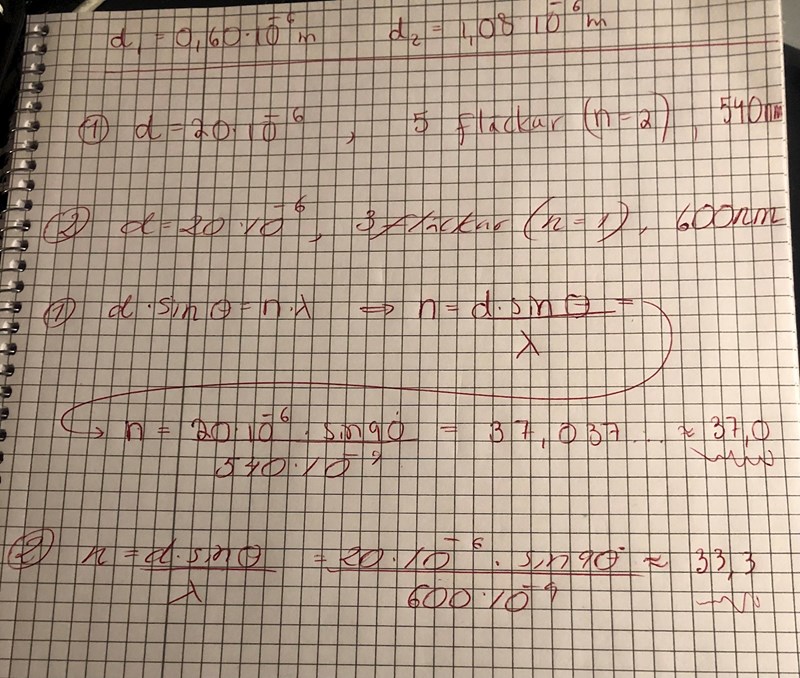 d₁ = 0,60·10⁻⁶m d₂ = 1,08 10⁻⁶m
① d = 20·10⁻⁶, 5 fläckar (n=2), 540nm
② d = 20·10⁻⁶, 3 fläckar (n=1), 600nm
① d·sinθ = n·λ ⇒ n = d·sinθ / λ =
→ n = 20·10⁻⁶·sin90° / 540·10⁻⁹ = 37,037... ≈ 37,0
② n = d·sinθ / λ = 20·10⁻⁶·sin90° / 600·10⁻⁹ ≈ 33,3